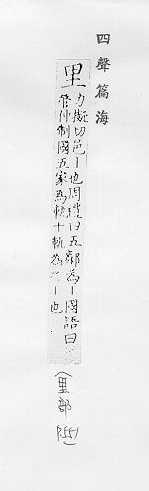 四聲篇海
里
力擬切邑丨也周禮曰五鄰為丨國語曰
管仲制國五家為軌十軌為丨也
(里部